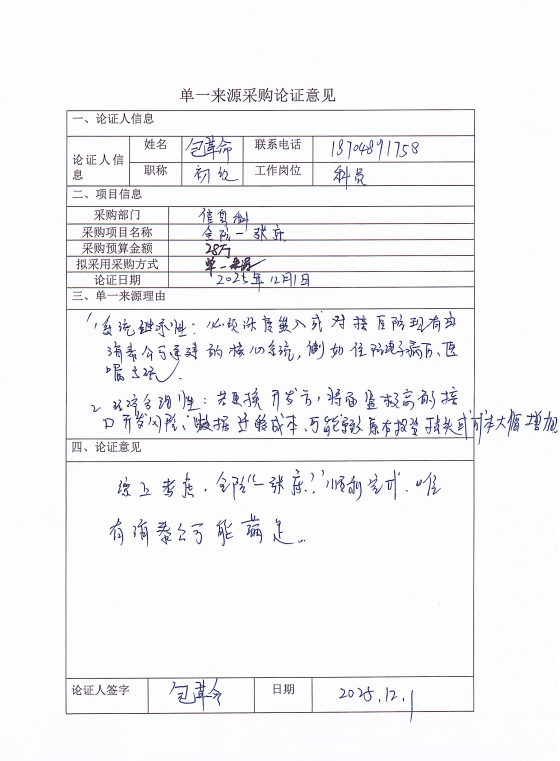 单一来源采购论证意见
一、论证人信息
论证人信息 姓名 包革命 联系电话 18704891758
职称 初级 工作岗位 科员
二、项目信息
采购部门 信息科
采购项目名称 全院一张床
采购预算金额 28万
拟采用采购方式 单一来源
论证日期 2025年12月1日
三、单一来源理由
1、系统继承性：必须深度嵌入或对接医院现有由
消泰公司建的核心系统，例如住院电子病历、医
嘱系统。
2、经济合理性：若更换开发方，将面监极高的接
口开发风险、数据迁移成本、可能导致原有投资损失或成本大幅增加
四、论证意见
综上考虑，全院“一张床”顺利完成，唯
有消泰公司能满足。
论证人签字 包革命 日期 2025.12.1